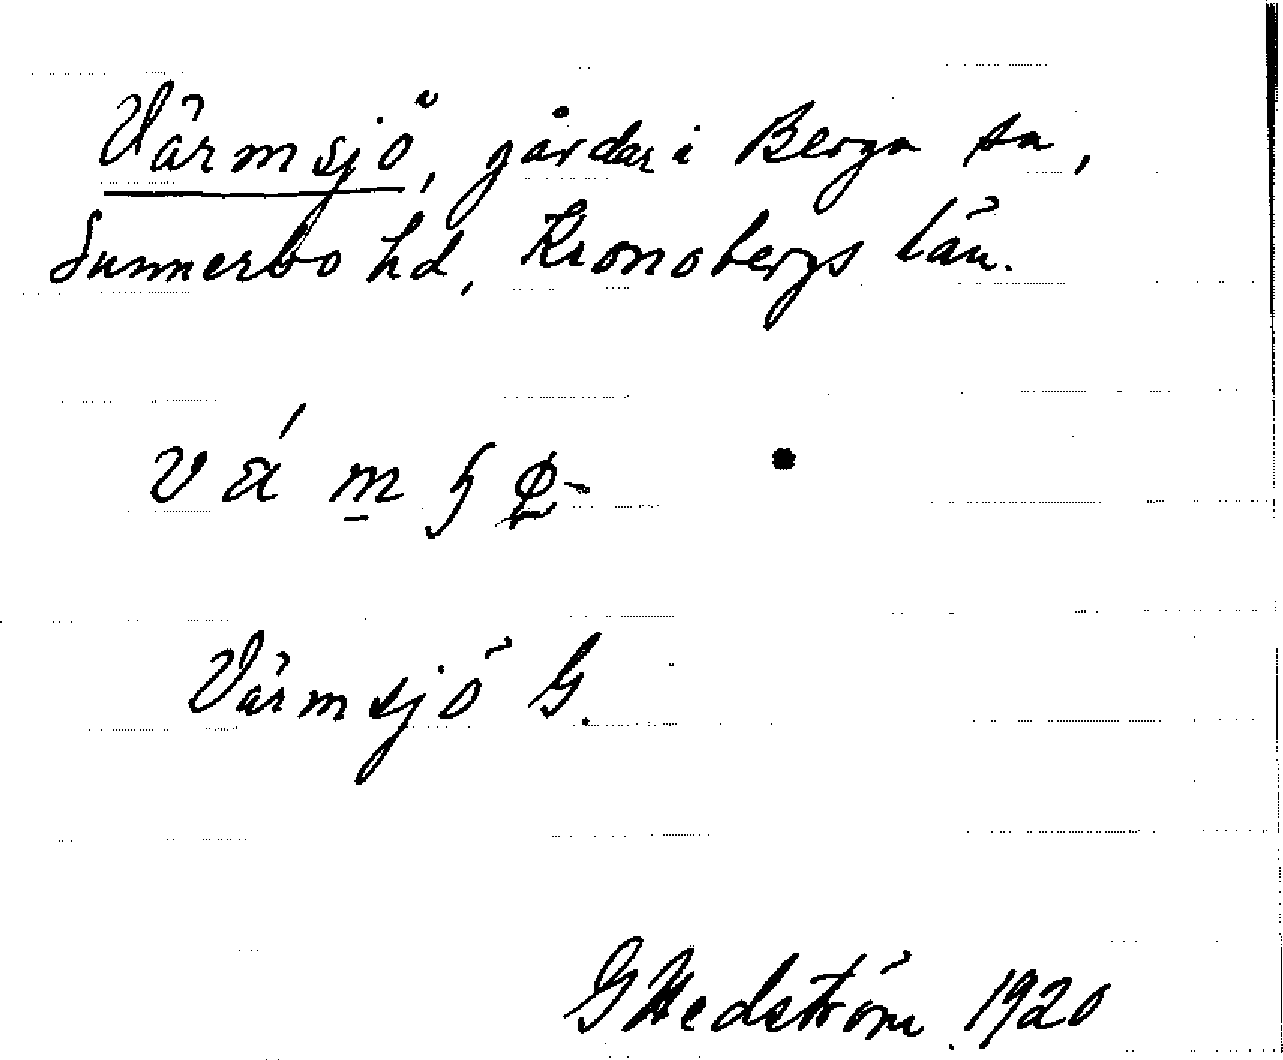 Värmsjö, gårdar i Berga sn,
Sunnerbo hd, Kronobergs län.
Värmsjö G.
G Hedström. 1920